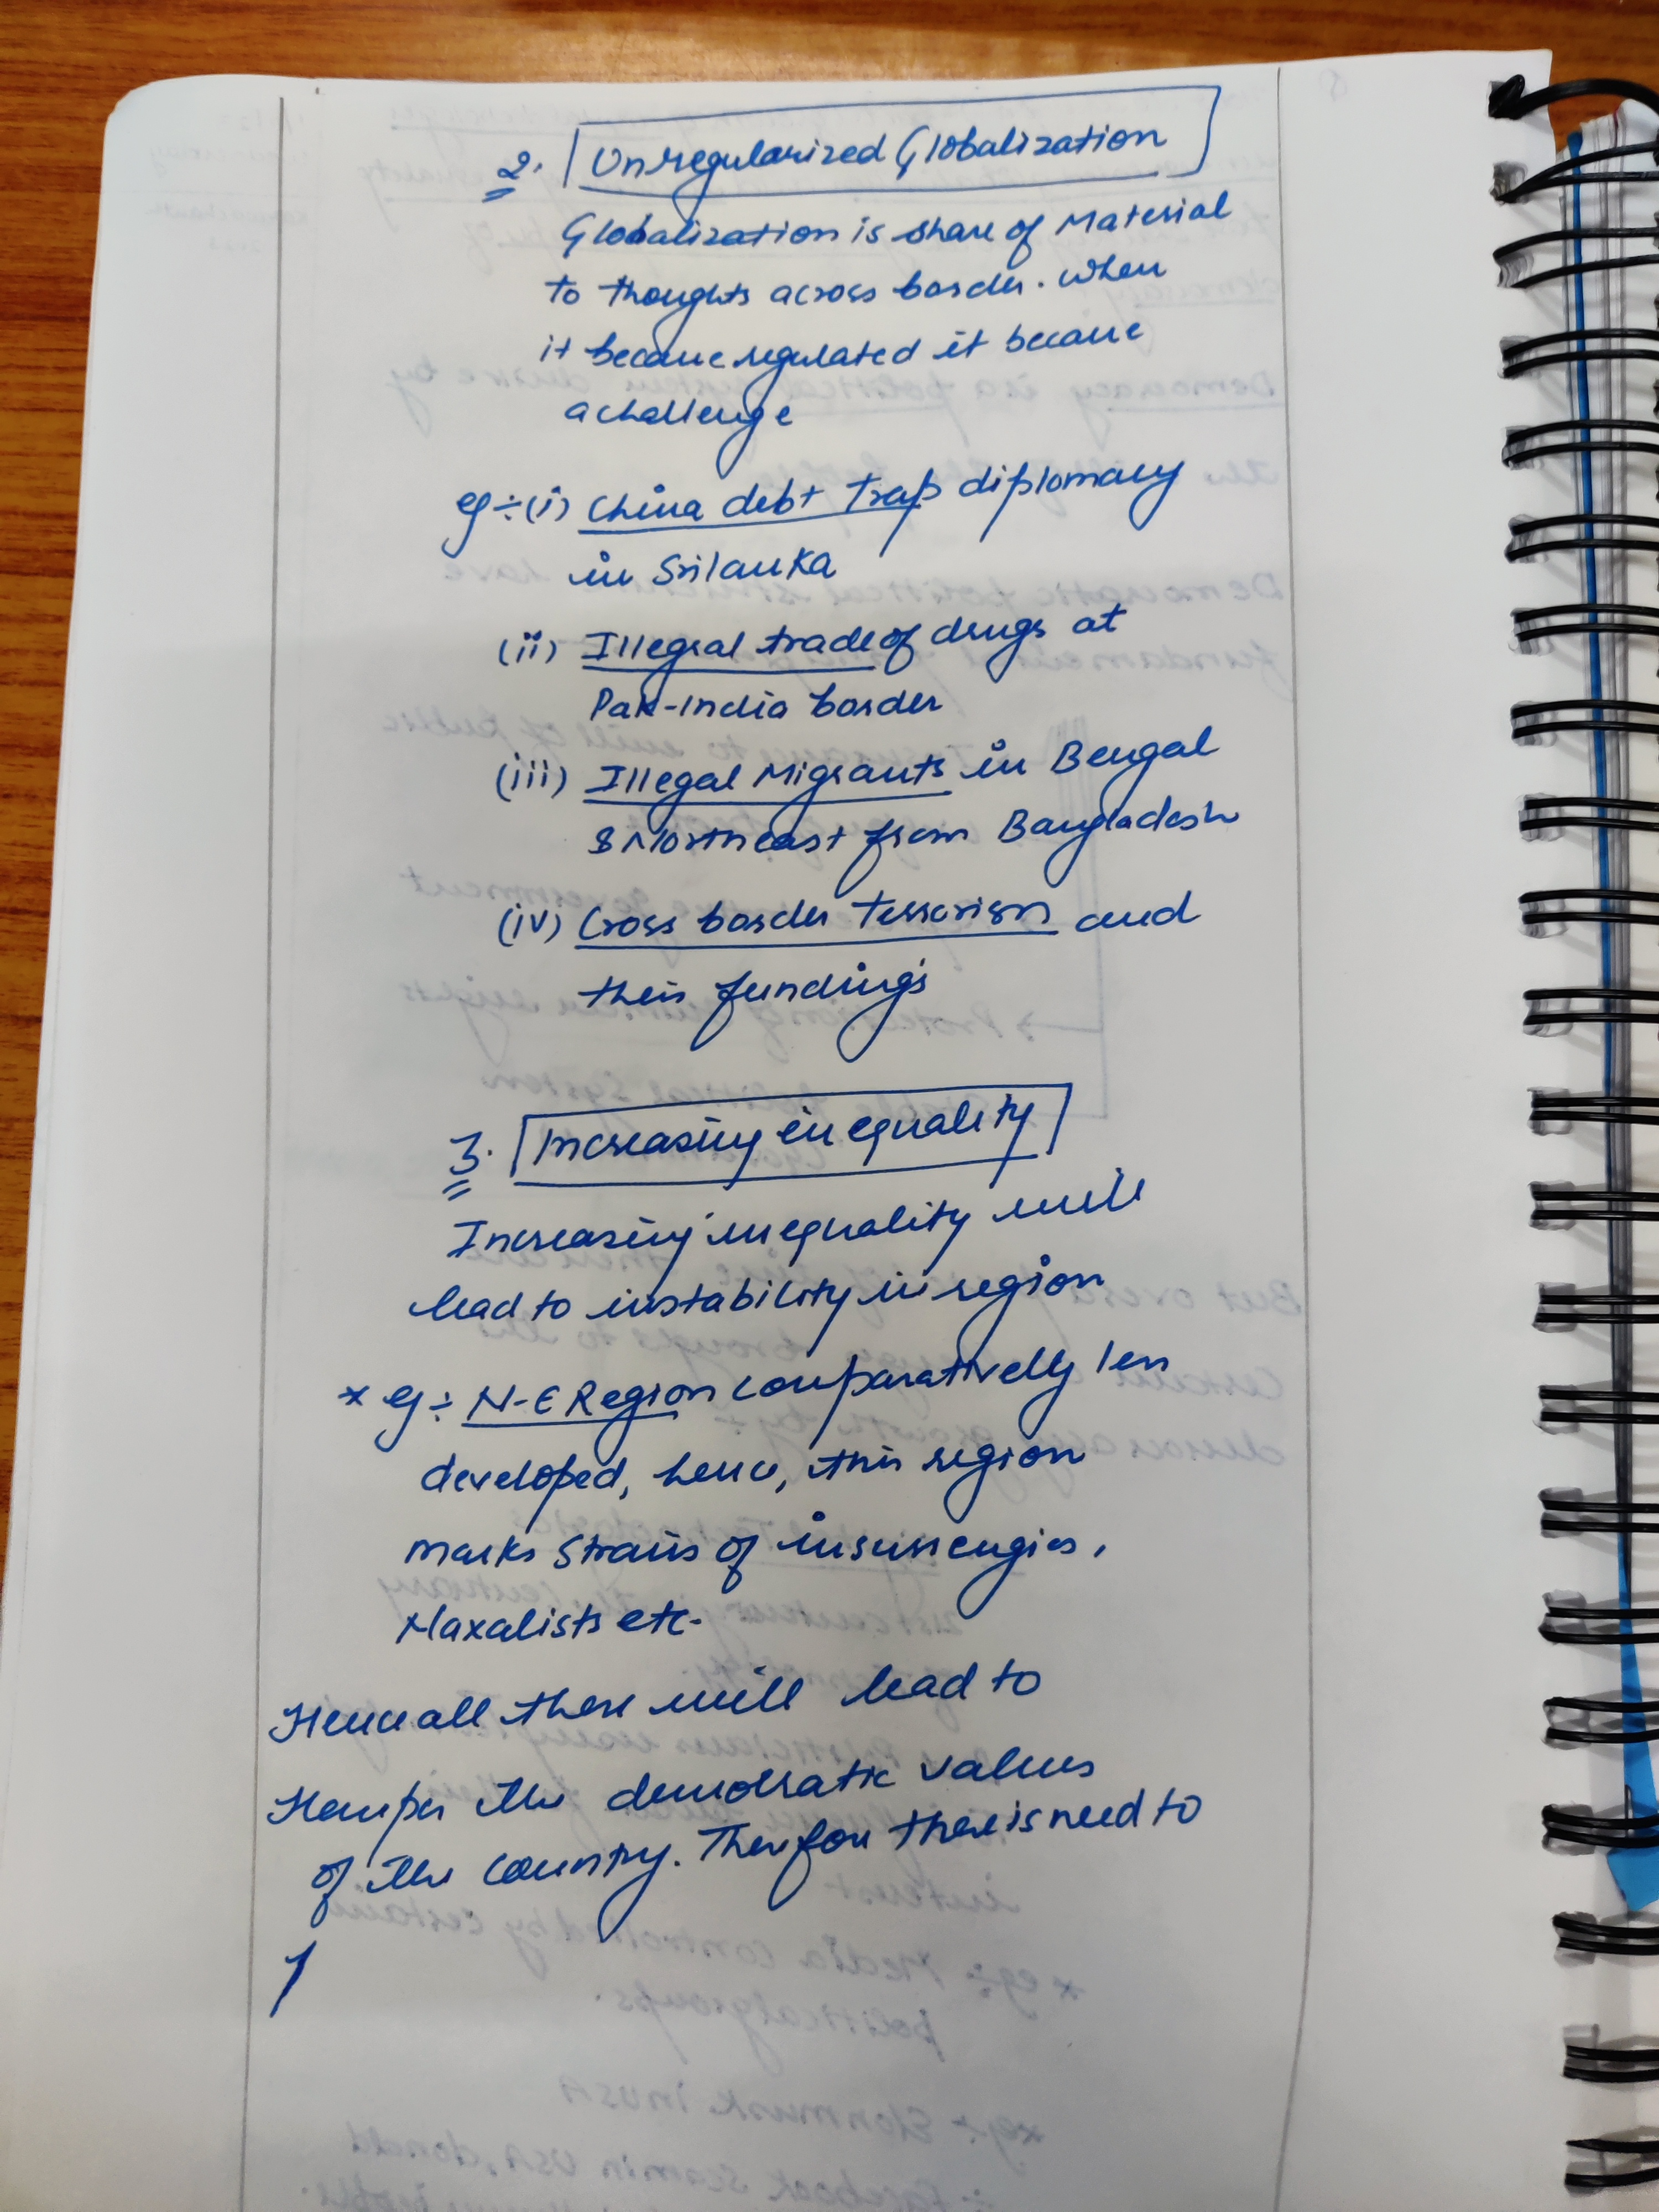 2. Unregularized Globalization
Globalization is share of Material
to thoughts across border. When
it became regulated it became
a challenge
eg÷(i) China debt trap diplomacy
in Srilanka
(ii) Illegal trade of drugs at
Pak-India border
(iii) Illegal Migrants in Bengal
& Northeast from Bangladesh
(iv) Cross border terrorism and
their funding's
3. Increasing inequality
Increasing inequality will
lead to instability in region
* eg÷ N-E Region comparatively less
developed, hence, this region
marks strains of insurrengies,
Naxalists etc.
Hence all these will lead to
Hamper the democratic values
of the country. Therefore there is need to